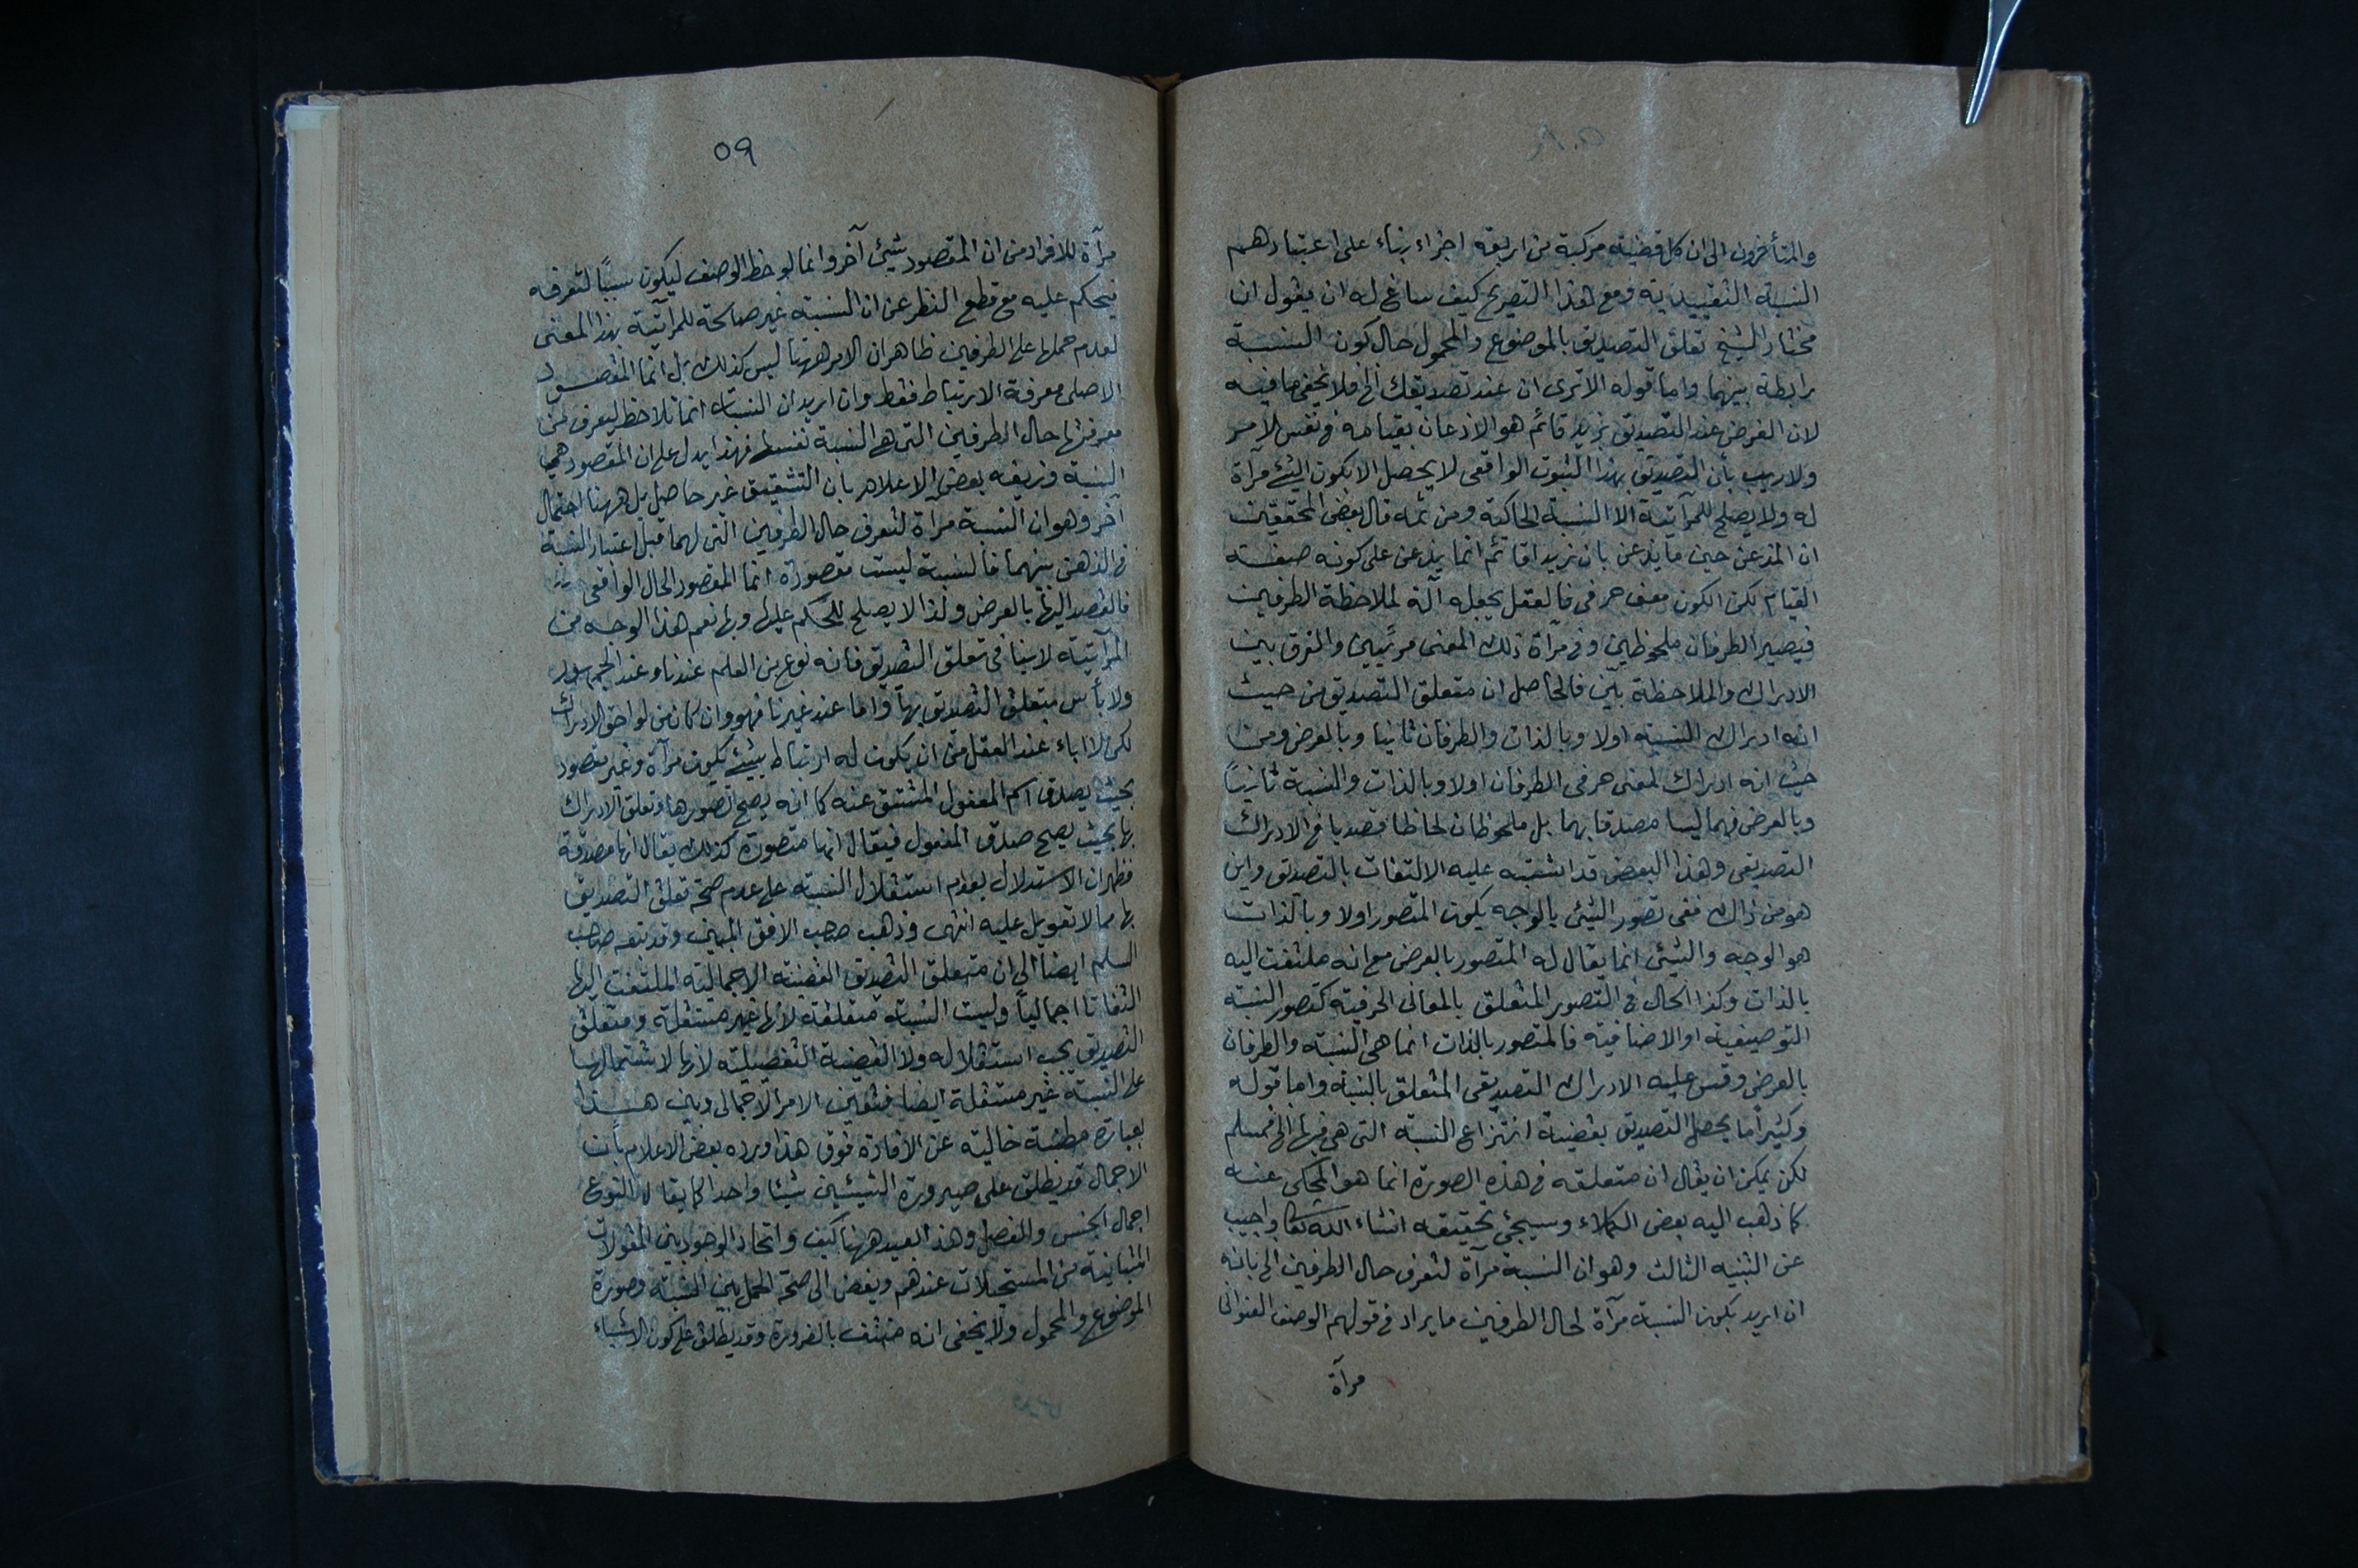 والمتأخرون الى ان كل قضية مركبة من اربعة اجزاء بناء على اعتبارهم
النسبة التقييدية ومع هذا التصريح كيف ساغ له ان يقول ان
مختار الشيخ تعلق التصديق بالموضوع والمحمول حال كون النسبة
رابطة بينهما واما قوله الا ترى ان عند تصديقك الخ فلا يخفى ما فيه
لان الغرض عند التصديق بزيد قائم هو الاذعان بقيامه فى نفس الامر
ولا ريب بأن التصديق بهذا الثبوت الواقعى لا يحصل الا بكون الشئ مرآة
له ولا يصلح للمرآتية الا النسبة الحاكية ومن ثمه قال بعض المحققين
ان المذعن حين ما يذعن بان زيدا قائم انما يذعن على كونه صفة
القيام لكن الكون معنى حرفى فالعقل يجعله آلة لملاحظة الطرفين
فيصير الطرفان ملحوظين وفى مرآة ذلك المعنى مرئيين والفرق بين
الادراك والملاحظة بين فالحاصل ان متعلق التصديق من حيث
انه ادراك النسبة اولا وبالذات والطرفان ثانيا وبالعرض ومن
حيث انه ادراك لمعنى حرفى الطرفان اولا وبالذات والنسبة ثانياً
وبالعرض فهما ليسا مصدقا بهما بل ملحوظان لحاظا قصديا فى الادراك
التصديقى وهذا البعض قد اشتبه عليه الالتفات بالتصديق واين
هو من ذاك ففى تصور الشئ بالوجه يكون المتصور اولا وبالذات
هو الوجه والشئ انما يقال له المتصور بالعرض مع انه ملتفت اليه
بالذات وكذا الحال فى التصور المتعلق بالمعانى الحرفية كتصور النسبة
التوصيفية او الاضافية فالمتصور بالذات انما هى النسبة والطرفان
بالعرض وقس عليه الادراك التصديقى المتعلق بالنسبة واما قوله
وكثيراً ما يحصل التصديق بقضية انتزاع النسبة التى هى فيها الخ فمسلم
لكن يمكن ان يقال ان متعلقه فى هذه الصورة انما هو المحكى عنه
كما ذهب اليه بعض الكملاء وسيجئ تحقيقه انشاء الله تعالى واجيب
عن التنبيه الثالث وهو ان النسبة مرآة لتعرف حال الطرفين الخ بانه
ان اريد بكون النسبة مرآة لحال الطرفين ما يراد فى قولهم الوصف العنوانى
مرآة
٥٩
مرآة للافراد من ان المقصود شيئ آخر وانما لوحظ الوصف ليكون سبباً لتعرفه
فيحكم عليه مع قطع النظر عن ان النسبة غير صالحة للمرآتية بهذا المعنى
لعدم حملها على الطرفين ظاهر ان الامر ههنا ليس كذلك بل انما المقصود
الاصلى معرفة الارتباط فقط وان اريد ان النسبة انما تلاحظ ليعرف من
معرفتها حال الطرفين التى هى النسبة نفسها فهذا يدل على ان المقصود هى
النسبة وزيفه بعض الاعلام بان التشقيق غير حاصل بل ههنا احتمال
آخر وهو ان النسبة مرآة لتعرف حال الطرفين التى لهما قبل اعتبار النسبة
فى الذهن بينهما فالنسبة ليست مقصودة انما المقصود الحال الواقعى
فالقصد اليها بالعرض ولذا لا يصلح للحكم عليها وبها نعم هذا الوجه من
المرآتية لا ينافى تعلق التصديق فانه نوع من العلم عندنا وعند الجمهور
ولا بأس بتعلق التصديق بها واما عند غيرنا فهو وان كان من لواحق الادراك
لكن لا اباء عند العقل من ان يكون له ارتباط بشيئ يكون مرآة وغير مقصود
بحيث يصدق اسم المفعول المشتق عنه كما انه يصح تصورها وتعلق الادراك
بها بحيث يصح صدق المفعول فيقال انها متصورة كذلك يقال انها مصدقة
فظهر ان الاستدلال بعدم استقلال النسبة على عدم صحة تعلق التصديق
بها مما لا تعويل عليه انتهى وذهب صاحب الافق المبين وقد تبعه صاحب
السلم ايضا الى ان متعلق التصديق القضية الاجمالية الملتفت اليها
التفاتا اجمالياً وليست النسبة متعلقة لانها غير مستقلة ومتعلق
التصديق يجب استقلاله ولا القضية التفصيلية لانها لاشتمالها
على النسبة غير مستقلة ايضا فتعين الامر الاجمالى وبين هذا
بعبارة خالية عن الافادة فوق هذا ورده بعض الاعلام بأن
الاجمال قد يطلق على صيرورة الشيئين شيئا واحدا كما يقال النوع
اجمال الجنس والفصل وهذا بعيد ههنا كيف واتحاد الوجود بين المقولات
المتباينة من المستحيلات عندهم ويفضى الى صحة الحمل بين النسبة وصورة
الموضوع والمحمول ولا يخفى انه منتف بالضرورة وقد يطلق على كون الاشياء